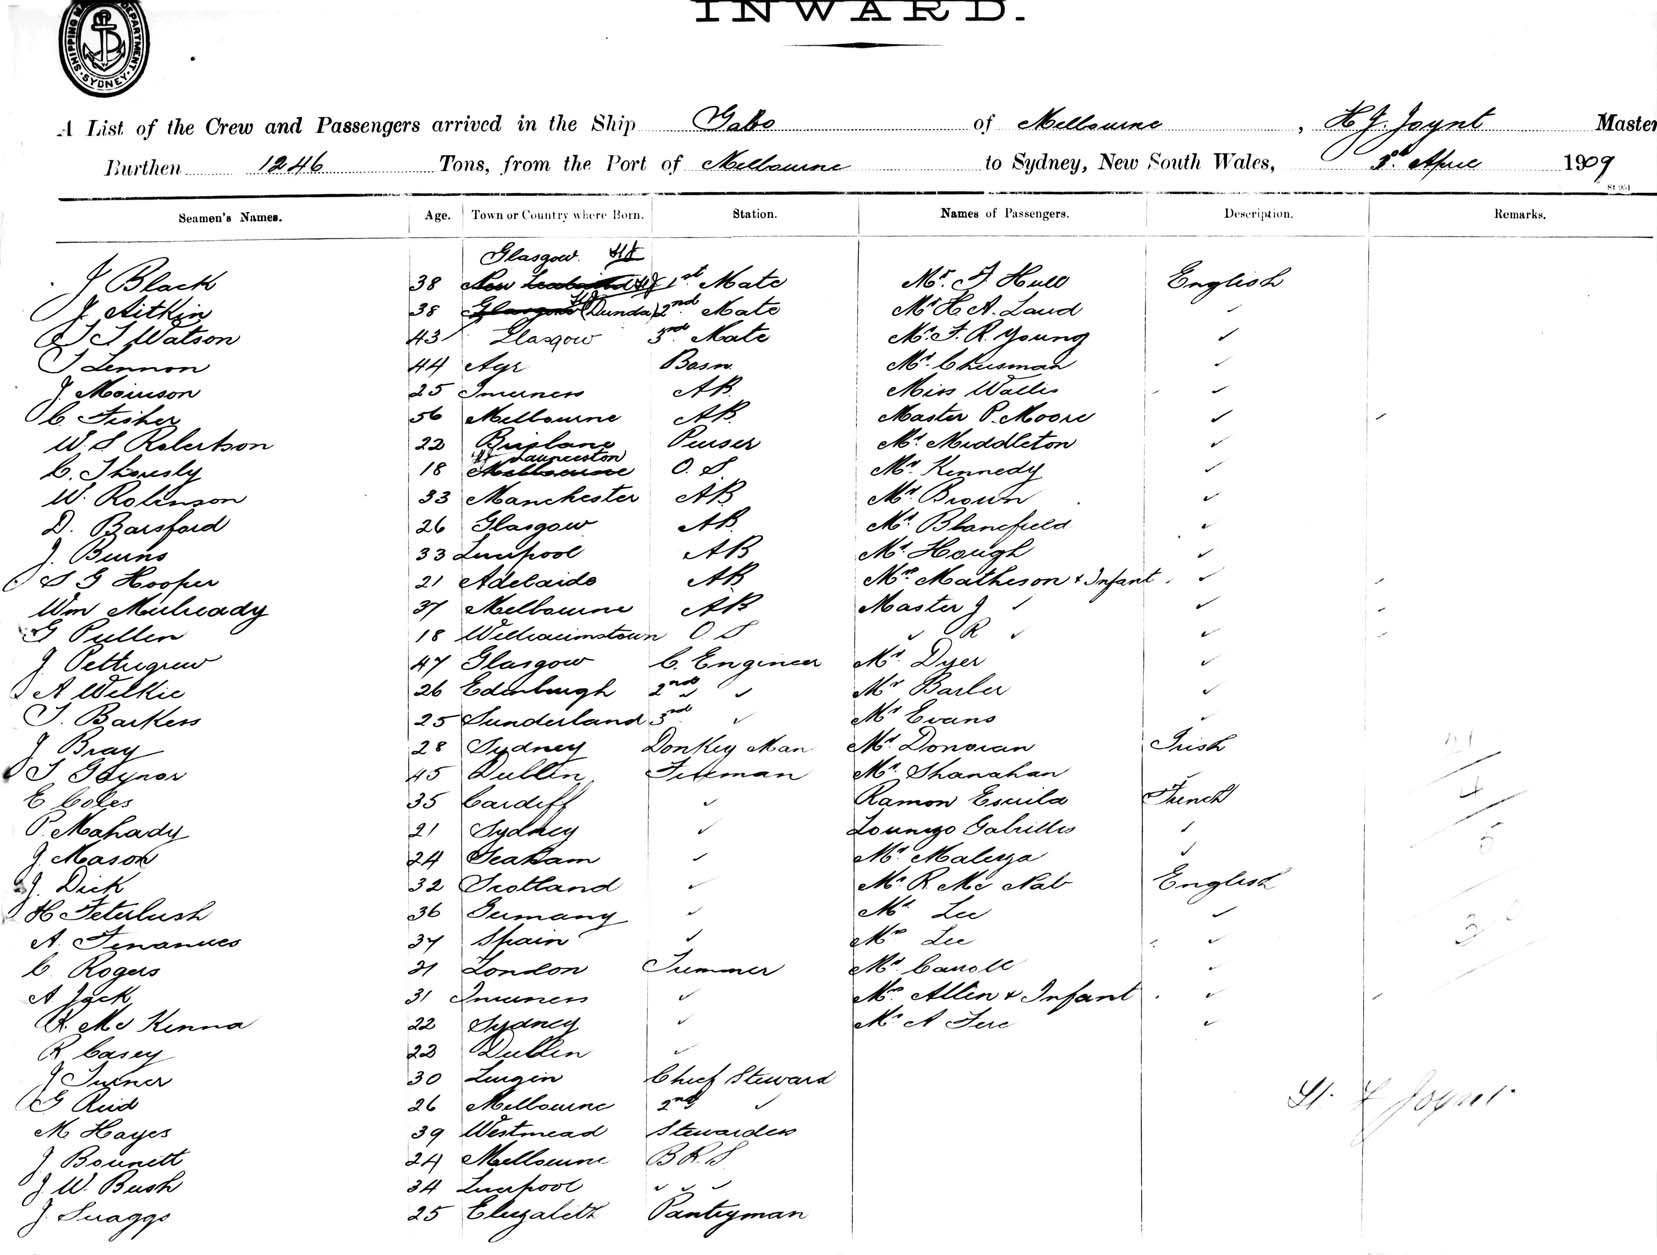 INWARD.
SHIPPING MASTER'S DEPARTMENT SYDNEY
A List of the Crew and Passengers arrived in the Ship Gabo of Melbourne, H J. Joynt Master
Burthen 1246 Tons, from the Port of Melbourne to Sydney, New South Wales, 3rd April 1909
Seamen's Names. Age. Town or Country where Born. Station. Names of Passengers. Description. Remarks.
Glasgow HJ
J Black 38 1st Mate Mr. J Hull English
J Aitkin 38 Dundas 2nd Mate Mr H A. Laud ✓
J Watson 43 Glasgow 3rd Mate Mr. F. R. Young ✓
J Lennon 44 Ayr Bosn Mr. Cheesman ✓
J Morrison 25 Inverness AB Miss Wallis ✓
C. Fisher 56 Melbourne AB Master P. Moore ✓
W. S Robertson 22 Brisbane Purser Mr Middleton ✓
Launceston
C. Thoresly 18 Melbourne O. S Mr. Kennedy ✓
W. Robinson 33 Manchester AB Mr Brown ✓
D. Barsford 26 Glasgow AB Mr. Blanefield ✓
J. Burns 33 Liverpool AB Mr Hough ✓
S G Hooper 21 Adelaide AB Mrs Matheson & Infant ✓
Wm Mulready 37 Melbourne AB Master J ✓ ✓
G Pullen 18 Williamstown O. S ✓ R ✓ ✓
J Pettigrew 47 Glasgow C. Engineer Mr Dyer ✓
A Wilkie 26 Edinburgh 2nd ✓ Mr Barber ✓
J. Barkess 25 Sunderland 3rd ✓ Mr Evans ✓
J Bray 28 Sydney Donkey Man Mr Donovan Irish
J Gaynor 45 Dublin Fireman Mr Shanahan ✓
E Coles 35 Cardiff ✓ Ramon French
P. Mahady 21 Sydney ✓ ✓
J Mason 24 Seaham ✓ Mr ✓
J. Dick 32 Scotland ✓ Mr R Mc Nab English
H Feterlush 36 Germany ✓ Mr Lee ✓
A. 37 Spain ✓ Mrs Lee ✓
C. Rogers 21 London Trimmer Mr Carroll ✓
A Jack 31 Inverness ✓ Mrs Allen & Infant ✓
R. Mc Kenna 22 Sydney ✓ Mr A ✓
R Casey 22 Dublin ✓
J Turner 30 Chief Steward
G Reid 26 Melbourne 2nd ✓
M Hayes 39 Westmead Stewardess
J Bonnett 24 Melbourne B R. S
J W. Bush 34 Liverpool ✓ ✓ ✓
J Suaggs 25 Elizabeth Pantryman
H. J Joynt